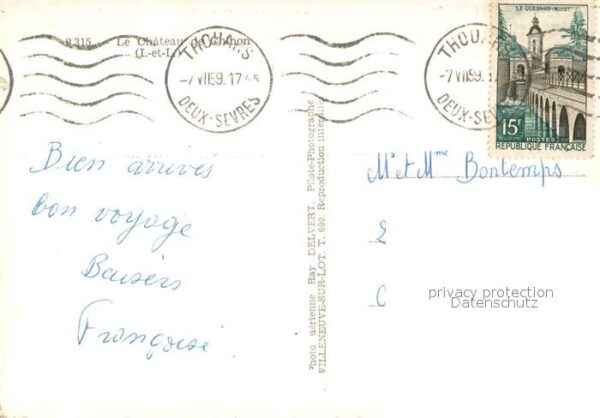 8 315 - Le Château de Chinon
(I.-et-L.)
THOUARS
-7 VII59. 17 45
DEUX-SEVRES
THOUARS
-7 VII59. 1
DEUX-SEVRES
LE QUESNOY - NORD
15F
POSTES
REPUBLIQUE FRANÇAISE
Bien arrivés
bon voyage
Baisers
Françoise
Photo aérienne Ray DELVERT, Pilote-Photographe
VILLENEUVE-SUR-LOT. T. 600. Reproduction interdite
Mr et Mme Bontemps
privacy protection
Datenschutz